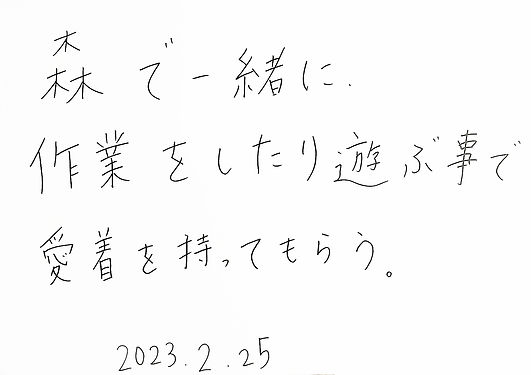 森で一緒に.
作業をしたり遊ぶ事で
愛着を持ってもらう。
2023.2.25